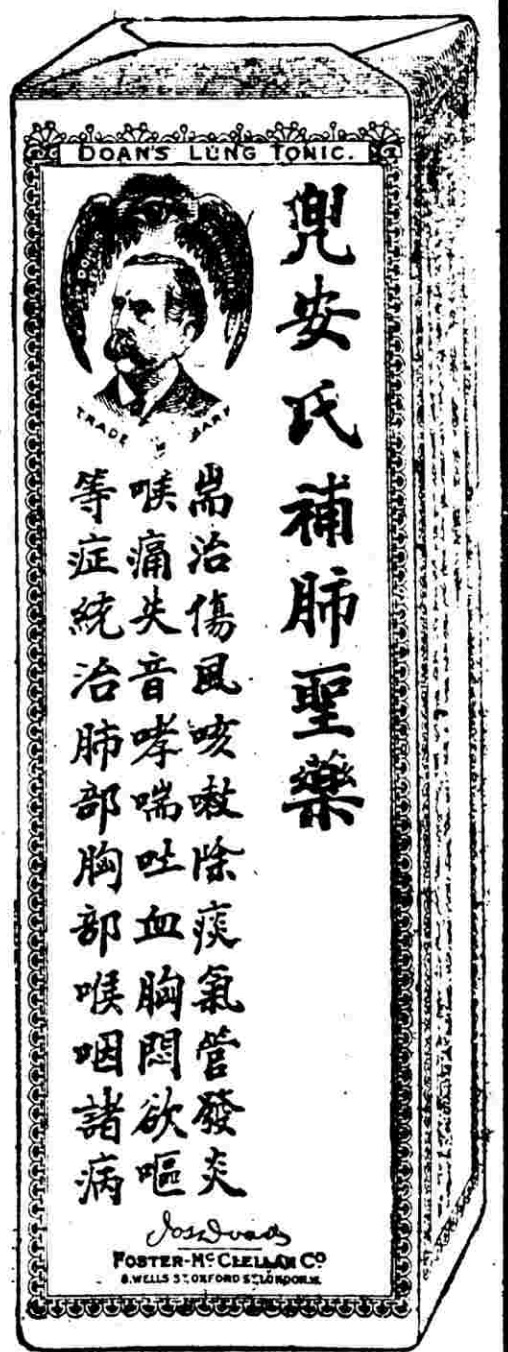 DOAN'S LUNG TONIC.
兜安氏補肺聖藥
耑治傷風咳嗽除痰氣管發炎
喉痛失音哮喘吐血胸悶欲嘔
等症統治肺部胸部喉咽諸病
TRADE MARK
FOSTER-McCLELLAN CO
8, WELLS ST OXFORD ST LONDON.W.